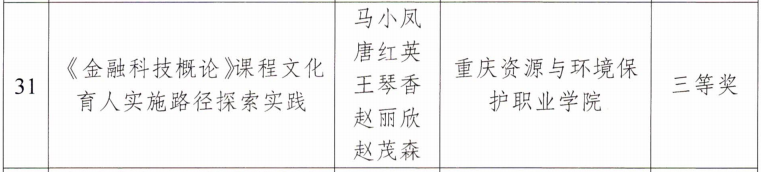 31
《金融科技概论》课程文化
育人实施路径探索实践
马小凤
唐红英
王琴香
赵丽欣
赵茂森
重庆资源与环境保
护职业学院
三等奖